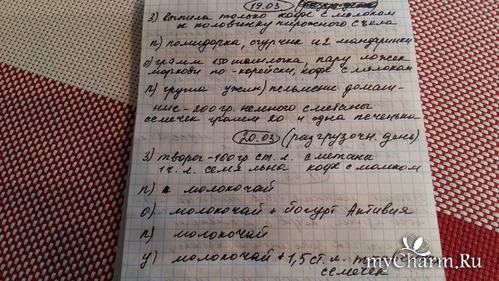 19.03
з) выпила только кофе с молоком
и половинку пирожного съела
п) помидорка, огурчик и 2 мандаринки
о) грамм 150 шашлыка, пару ложек
моркови по-корейски, кофе с молоком
п) груша ужин) пельмени домаш-
ние-200гр. немного сметаны
семечек грамм 20 и одна печенька
20.03 (разгрузочн. день)
з) творог-160гр ст. л. сметана
1 ч. л. семя льна кофе с молоком
п) молокочай
о) молокочай + йогурт Активия
п) молокочай
у) молокочай + 1,5 ст. л.
семечек
myCharm.Ru